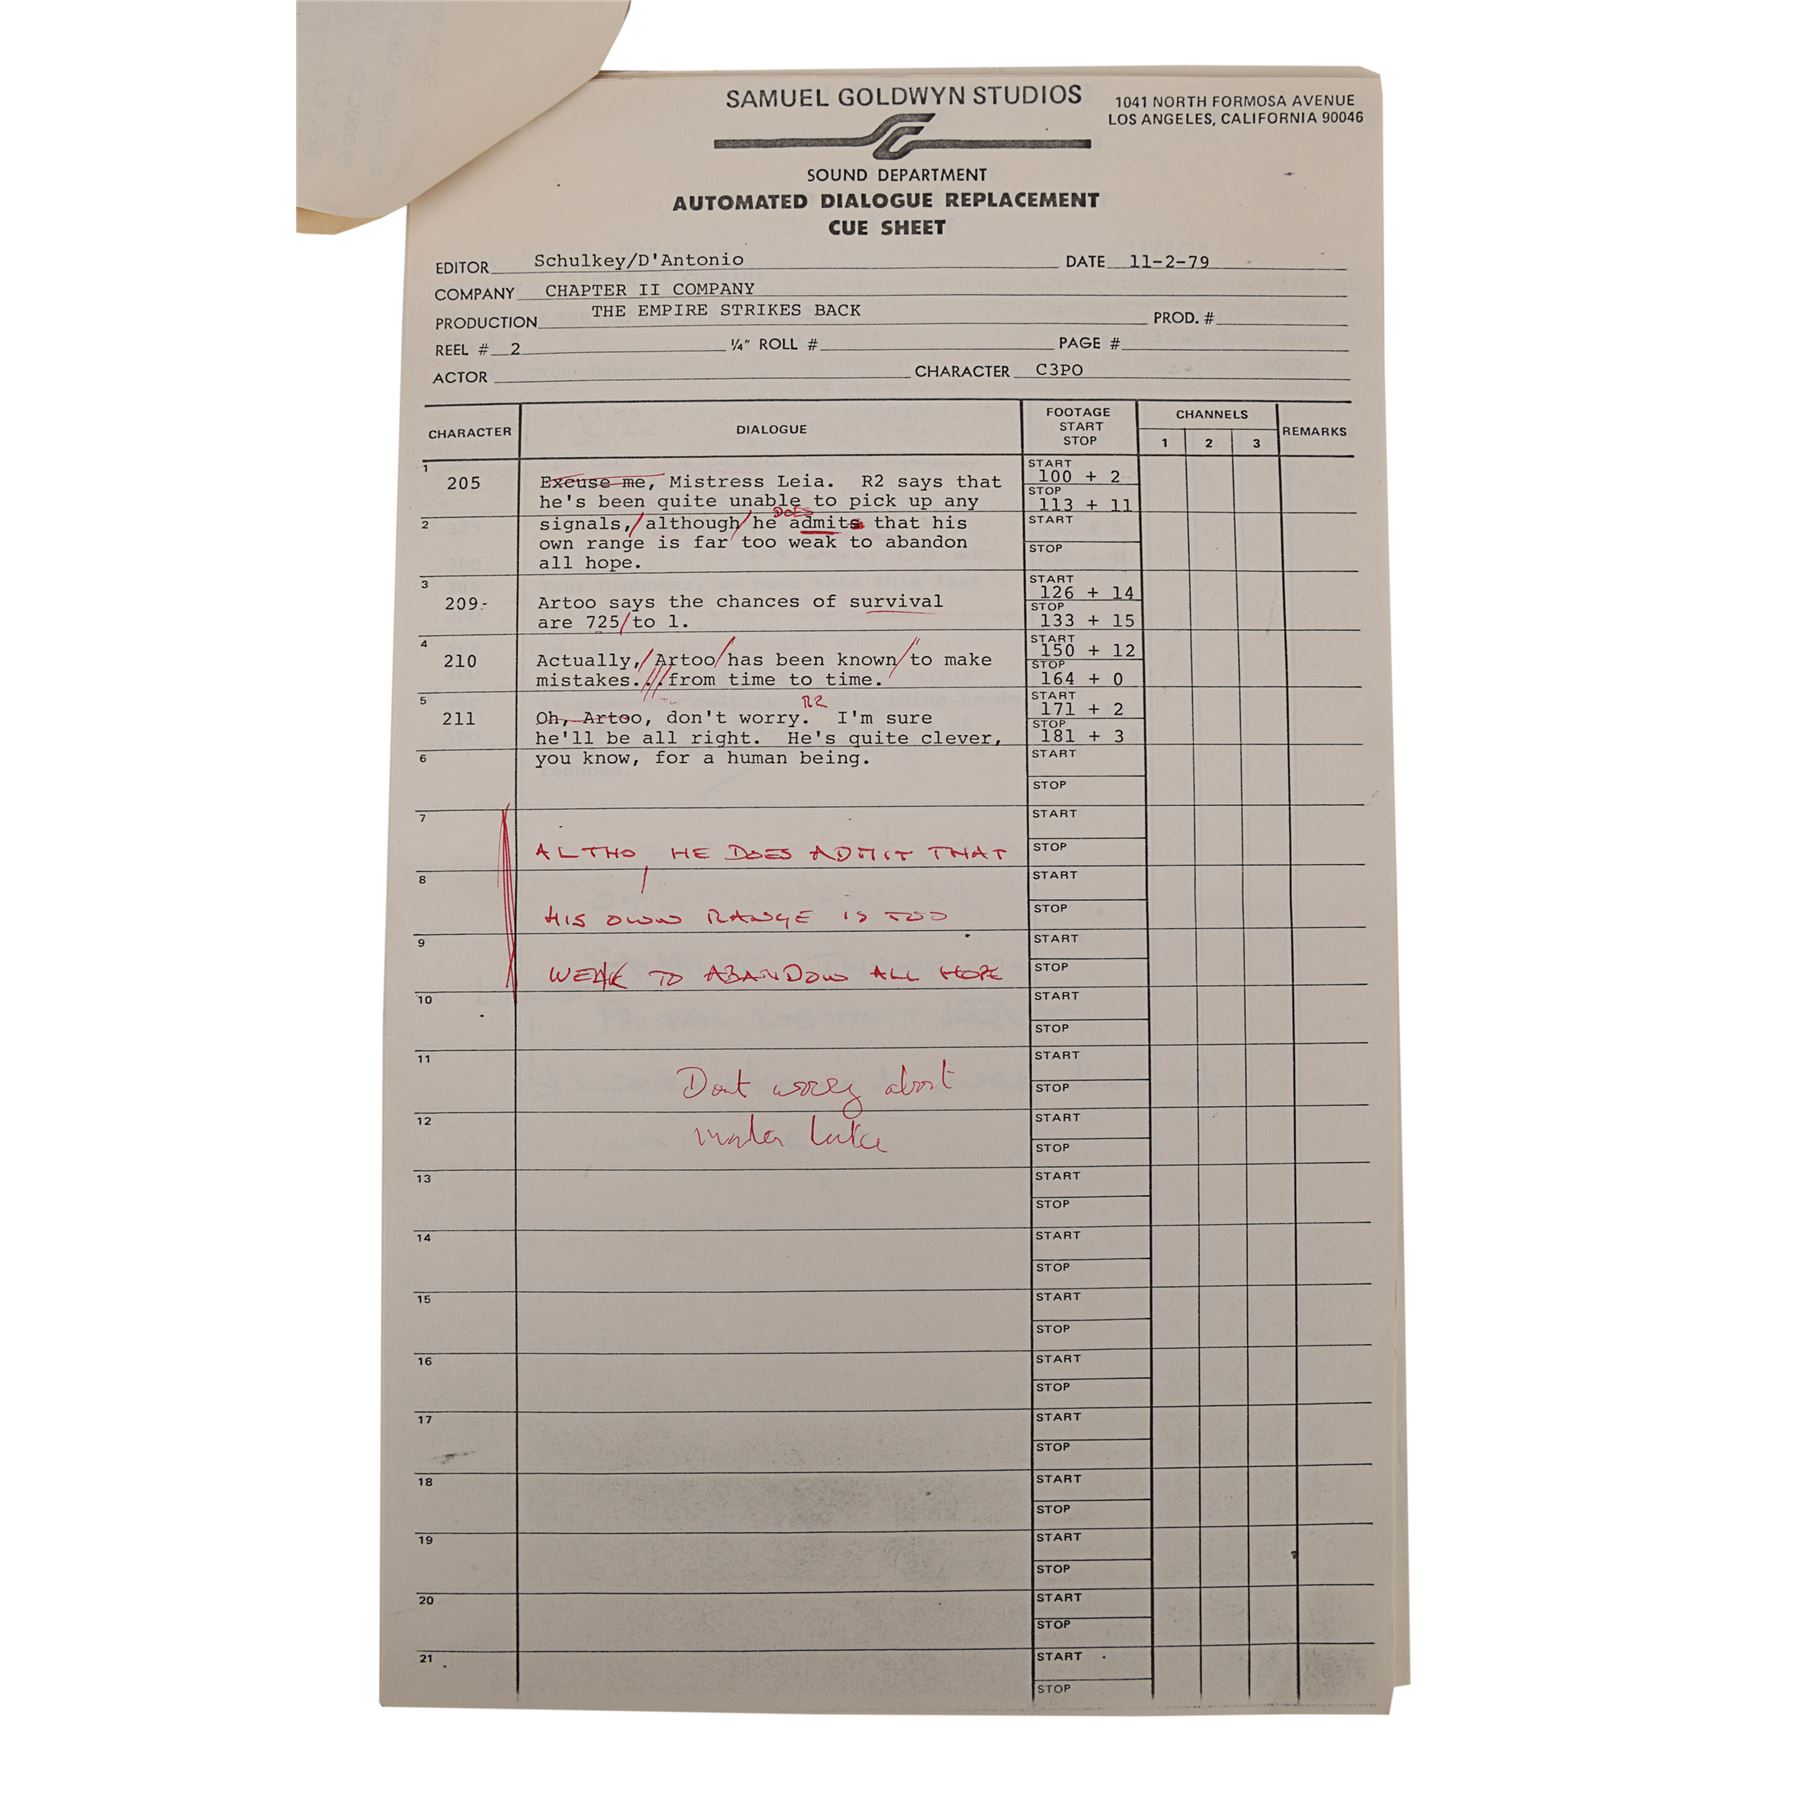 SAMUEL GOLDWYN STUDIOS
1041 NORTH FORMOSA AVENUE
LOS ANGELES, CALIFORNIA 90046
SOUND DEPARTMENT
AUTOMATED DIALOGUE REPLACEMENT
CUE SHEET
EDITOR Schulkey/D'Antonio DATE 11-2-79
COMPANY CHAPTER II COMPANY
PRODUCTION THE EMPIRE STRIKES BACK PROD. #
REEL # 2 ¼" ROLL # PAGE #
ACTOR CHARACTER C3PO
CHARACTER DIALOGUE FOOTAGE START STOP CHANNELS 1 2 3 REMARKS
1 START
205 Excuse me, Mistress Leia. R2 says that 100 + 2
he's been quite unable to pick up any STOP 113 + 11
DOES
2 signals, although he admits that his START
own range is far too weak to abandon STOP
all hope.
3 START 126 + 14
209 Artoo says the chances of survival STOP
are 725 to 1. 133 + 15
4 START 150 + 12
210 Actually, Artoo has been known to make STOP
mistakes...from time to time. 164 + 0
5 R2 START 171 + 2
211 Oh, Artoo, don't worry. I'm sure STOP
he'll be all right. He's quite clever, 181 + 3
6 you know, for a human being. START
STOP
7 START
ALTHO, HE DOES ADMIT THAT STOP
8 START
HIS OWN RANGE IS TOO STOP
9 START
WEAK TO ABANDON ALL HOPE STOP
10 START
STOP
11 START
Dont worry about STOP
12 START
master luke STOP
13 START
STOP
14 START
STOP
15 START
STOP
16 START
STOP
17 START
STOP
18 START
STOP
19 START
STOP
20 START
STOP
21 START
STOP